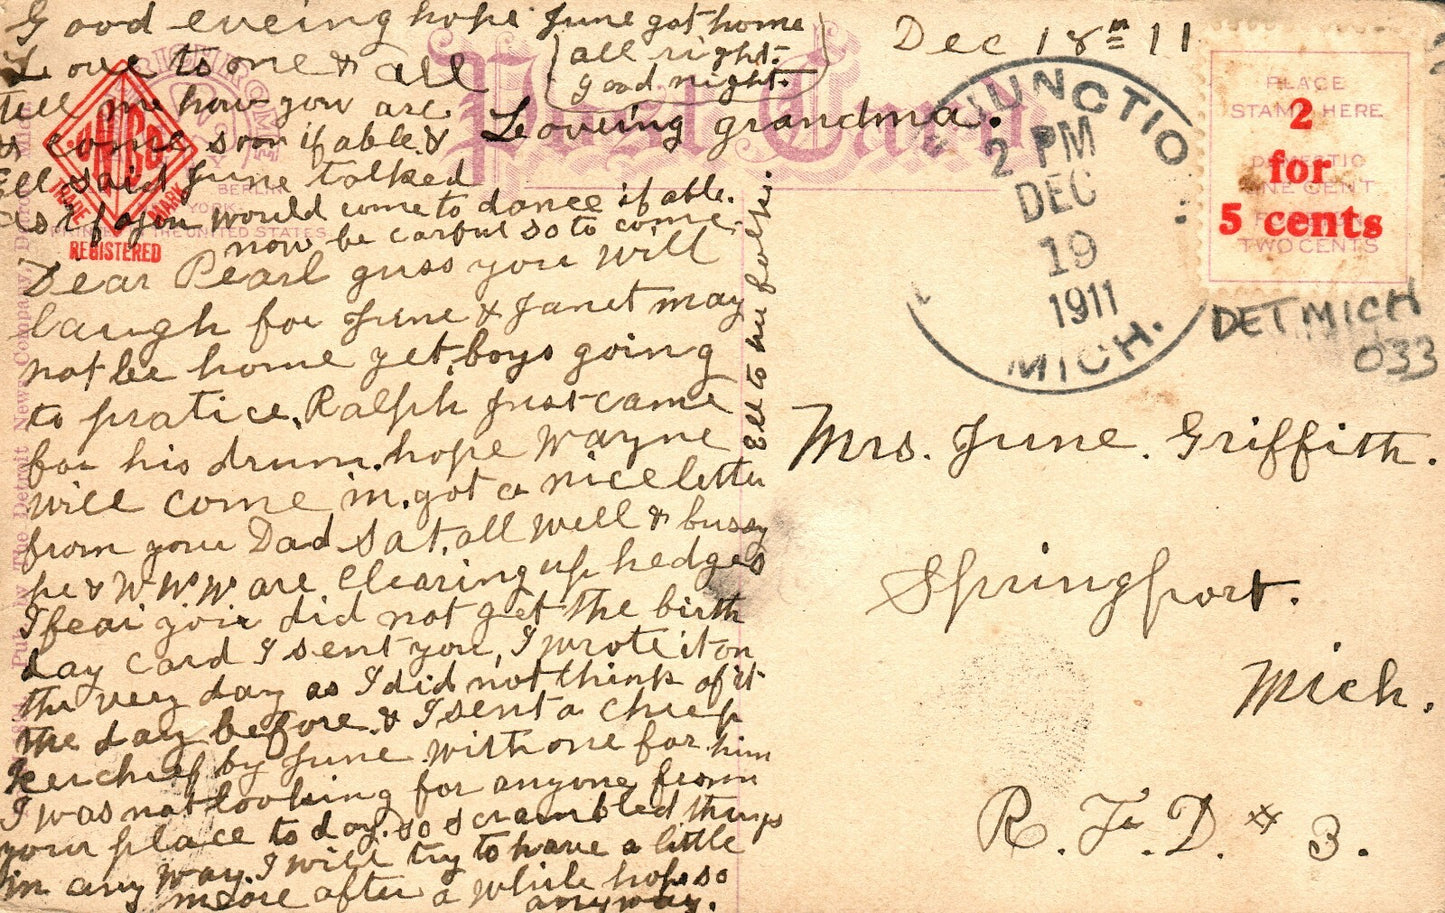 Good eveing hope June got home
all right.
good night.
Love to one & all
tell me how you are
& come soon if able. &
Loveing grandma.
Ell said June talked
as if you would come to dance if able.
now be carful so to come.
Dear Pearl guss you will
laugh for June & Janet may
not be home yet, boys going
to pratice, Ralph just came
for his drum. hope Wayne
will come in. got a nice letter
from your Dad Sat. all well & bussy
he & W W W are clearing up hedges
I fear you did not get the birth
day card I sent you, I wrote it on
the very day as I did not think of it
the day before. & I sent a chief
kerchief by June with one for him
I was not looking for anyone from
your place to day. so scrambled things
in any way. I will try to have a little
more after a while hope so
anyway.
Ell to hu folks.
Dec 18th 11
Post Card
TRADE MARK
REGISTERED
BERLIN
YORK
THE UNITED STATES
Pub. by The Detroit News Company, Detroit, Mich.
JUNCTIO
2 PM
DEC
19
1911
MICH.
PLACE
STAMP HERE
DOMESTIC
ONE CENT
TWO CENTS
2
for
5 cents
DET MICH
033
Mrs. June Griffith.
Springport.
Mich.
R. F. D. # 3.